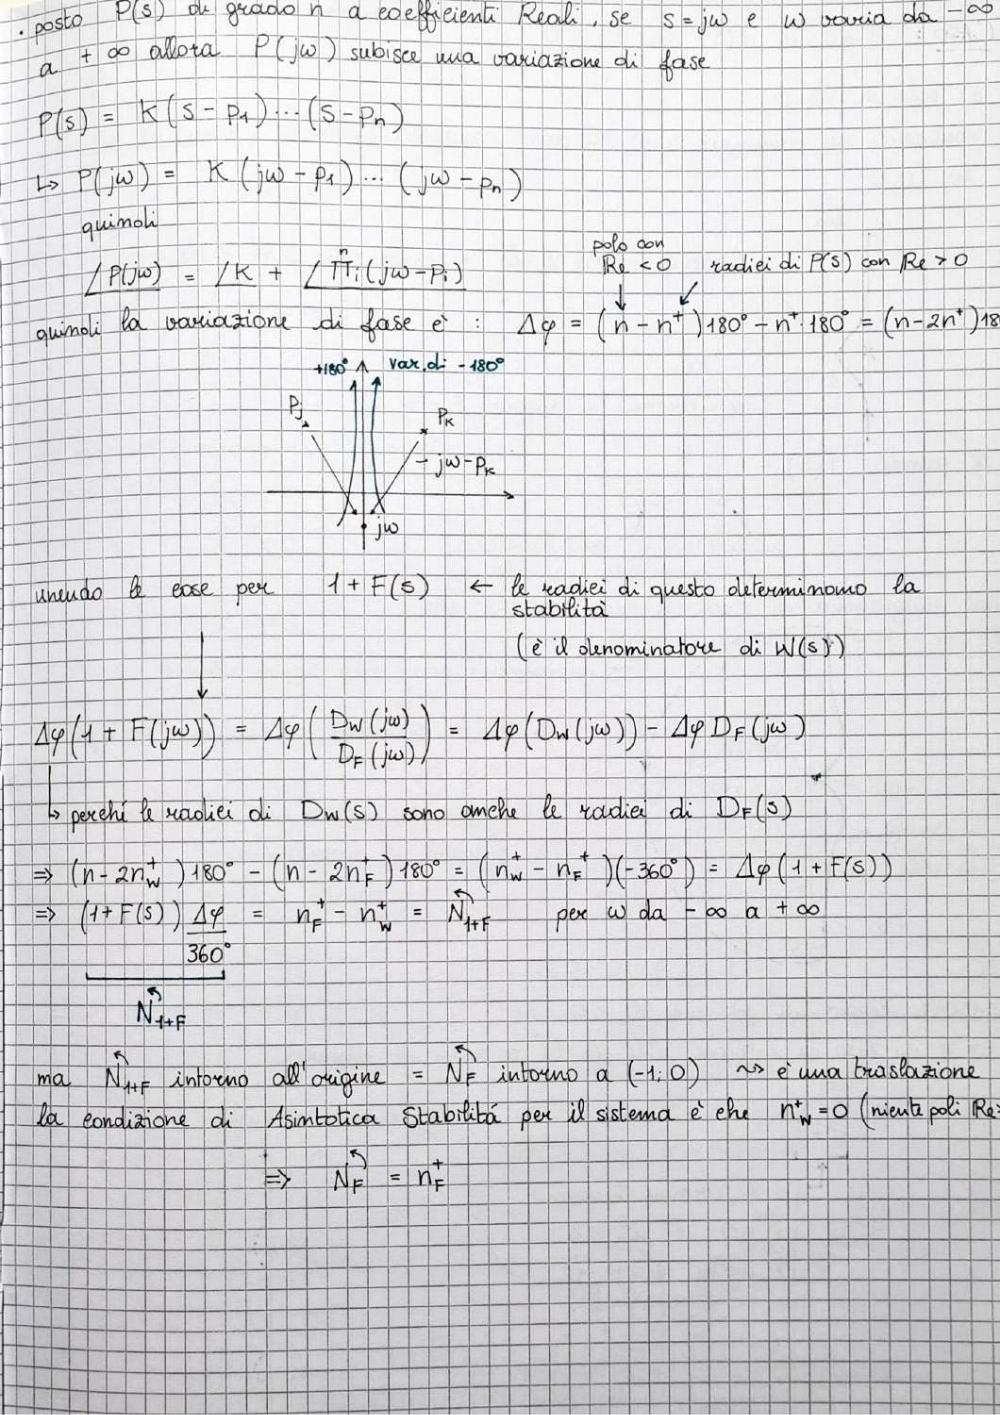 . posto P(s) di grado n a coefficienti Reali, se s=jω e ω varia da -∞
a +∞ allora P(jω) subisce una variazione di fase
P(s) = K(s-p₁)...(s-pₙ)
↳ P(jω) = K(jω-p₁)...(jω-pₙ)
quindi
polo con
Re <0 radici di P(s) con Re >0
∠P(jω) = ∠K + ∠∏ᵢⁿ(jω-pᵢ)
quindi la variazione di fase è : Δφ = (n-n⁺)180° - n⁺·180° = (n-2n⁺)18
+180° var. di -180°
Pj
PK
jω-PK
jω
unendo le cose per 1+F(s) ← le radici di questo determinano la
stabilità
(è il denominatore di W(s))
Δφ(1+F(jω)) = Δφ(D_W(jω)/D_F(jω)) = Δφ(D_W(jω)) - Δφ D_F(jω)
↳ perché le radici di D_W(s) sono anche le radici di D_F(s)
⇒ (n-2n_W⁺)180° - (n-2n_F⁺)180° = (n_W⁺ - n_F⁺)(-360°) = Δφ(1+F(s))
⇒ (1+F(s)) Δφ/360° = n_F⁺ - n_W⁺ = N↶_1+F per ω da -∞ a +∞
N↶_1+F
ma N↶_1+F intorno all'origine = N↶_F intorno a (-1;0) ⇝ è una traslazione
la condizione di Asintotica Stabilitá per il sistema è che n_W⁺=0 (niente poli Re>
⇒ N↶_F = n_F⁺